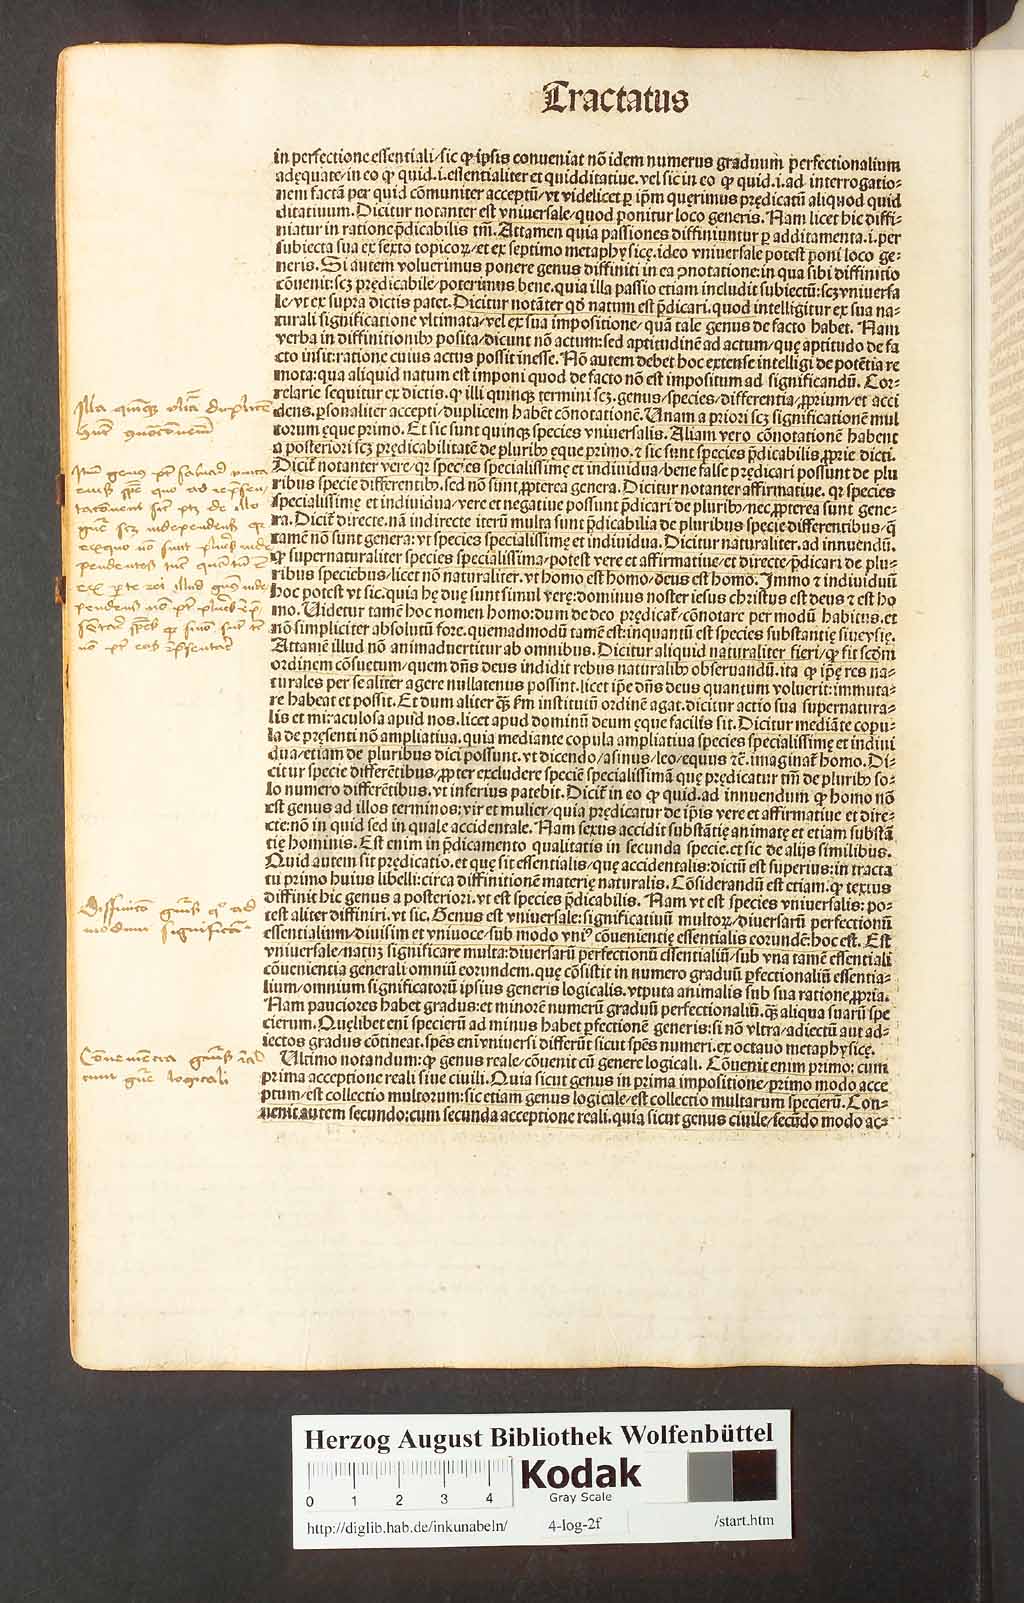 Tractatus
in perfectione essentiali/sic ꝙ ipsis conueniat nō idem numerus graduum perfectionalium
adęquate/in eo ꝙ quid.i.essentialiter et quidditatiue.vel sic in eo ꝙ quid.i.ad interrogatio⸗
nem factā per quid cōmuniter acceptū/vt videlicet ꝑ ip̄m querimus prędicatū aliquod quid
ditatiuum. Dicitur notanter est vniuersale/quod ponitur loco generis. Nam licet hic diffi⸗
niatur in ratione p̄dicabilis tm̄. Attamen quia passiones diffiniuntur ꝑ additamenta.i.per
subiecta sua ex sexto topicoꝝ/et ex septimo metaphysicę.ideo vniuersale potest poni loco ge⸗
neris. Si autem voluerimus ponere genus diffiniti in ea ꝯnotatione:in qua sibi diffinitio
cōuenit:scꝫ prędicabile/poterimus bene.quia illa passio etiam includit subiectū:scꝫ vniuersa
le/vt ex supra dictis patet. Dicitur notāter qd̄ natum est p̄dicari.quod intelligitur ex sua na⸗
turali significatione vltimata/vel ex sua impositione/quā tale genus de facto habet. Nam
verba in diffinitionibꝫ posita/dicunt nō actum:sed aptitudinē ad actum/quę aptitudo de fa
cto insit:ratione cuius actus possit inesse. Nō autem debet hoc extense intelligi de potētia re
mota:qua aliquid natum est imponi quod de facto nō est impositum ad significandū. Cor⸗
relarie sequitur ex dictis.ꝙ illi quinqꝫ termini scꝫ.genus/species/differentia/ꝓprium/et acci
dens.ꝑsonaliter accepti/duplicem habēt cōnotationē. Vnam a priori scꝫ significationē mul
torum ęque primo. Et sic sunt quinqꝫ species vniuersalis. Aliam vero cōnotationē habent
a posteriori scꝫ prędicabilitatē de pluribꝫ ęque primo.⁊ sic sunt species p̄dicabilis ꝓprie dicti.
Dicit̄ notanter vere/qꝛ species specialissimę et indiuidua/bene false prędicari possunt de plu
ribus specie differentibꝫ.sed nō sunt ꝓpterea genera. Dicitur notanter affirmatiue. qꝛ species
specialissimę et indiuidua/vere et negatiue possunt p̄dicari de pluribꝫ/nec ꝓpterea sunt gene⸗
ra. Dicit̄ directe.nā indirecte iterū multa sunt p̄dicabilia de pluribus specie differentibus/q̄
tamē nō sunt genera:vt species specialissimę et indiuidua. Dicitur naturaliter.ad innuendū.
ꝙ supernaturaliter species specialissima/potest vere et affirmatiue/et directe/p̄dicari de plu⸗
ribus speciebus/licet nō naturaliter.vt homo est homo/deus est homo. Immo ⁊ indiuiduū
hoc potest vt sic:quia hę duę sunt simul vere:dominus noster iesus christus est deus ⁊ est ho
mo. Videtur tamē hoc nomen homo:dum de deo prędicat̄/cōnotare per modū habitus.et
nō simpliciter absolutū fore.quemadmodū tamē est:inquantū est species substantię siue ysię.
Attamē illud nō animaduertitur ab omnibus. Dicitur aliquid naturaliter fieri/ꝙ fit scd̄m
ordinem cōsuetum/quem dn̄s deus indidit rebus naturalibꝫ obseruandū.ita ꝙ ip̄ę res na⸗
turales per se aliter agere nullatenus possint.licet ip̄e dn̄s deus quantum voluerit:immuta⸗
re habeat et possit. Et dum aliter qꝫ̄ ẜm institutū ordinē agat.dicitur actio sua supernatura⸗
lis et miraculosa apud nos.licet apud dominū deum ęque facilis sit. Dicitur mediāte copu⸗
la de pręsenti nō ampliatiua.quia mediante copula ampliatiua species specialissimę et indiui
dua/etiam de pluribus dici possunt.vt dicendo/asinus/leo/equus ⁊c̄.imaginat̄ homo. Di⸗
citur specie differētibus/ꝓpter excludere speciē specialissimā quę prędicatur tm̄ de pluribꝫ so⸗
lo numero differētibus.vt inferius patebit. Dicit̄ in eo ꝙ quid.ad innuendum ꝙ homo nō
est genus ad illos terminos:vir et mulier/quia prędicatur de ip̄is vere et affirmatiue et dire⸗
cte:nō in quid sed in quale accidentale. Nam sexus accidit substātię animatę et etiam substā
tię hominis. Est enim in p̄dicamento qualitatis in secunda specie.et sic de alijs similibus.
Quid autem sit prędicatio.et quę sit essentialis/quę accidentalis:dictū est superius:in tracta
tu primo huius libelli:circa diffinitionē materię naturalis. Cōsiderandū est etiam.ꝙ textus
diffinit hic genus a posteriori.vt est species p̄dicabilis. Nam vt est species vniuersalis:po⸗
test aliter diffiniri.vt sic. Genus est vniuersale:significatiuū multoꝝ/diuersarū perfectionū
essentialium/diuisim et vniuoce/sub modo vniꝰ cōuenientię essentialis eorundē:hoc est. Est
vniuersale/natuꝫ significare multa:diuersarū perfectionū essentialiū/sub vna tamē essentiali
cōuenientia generali omniū eorundem.quę cōsistit in numero graduū ꝑfectionaliū essentia⸗
lium/omnium significatorū ipsius generis logicalis.vtputa animalis sub sua ratione ꝓpria.
Nam pauciores habet gradus:et minorē numerū graduū perfectionaliū.qꝫ̄ aliqua suarū spe
cierum. Quęlibet eni specierū ad minus habet ꝑfectionē generis:si nō vltra/adiectū aut ad⸗
iectos gradus cōtineat.spēs eni vniuersi differūt sicut spēs numeri.ex octauo metaphysicę.
Ultimo notandum:ꝙ genus reale/cōuenit cū genere logicali. Cōuenit enim primo: cum
prima acceptione reali siue ciuili. Quia sicut genus in prima impositione/primo modo acce
ptum/est collectio multorum:sic etiam genus logicale/est collectio multarum specierū. Con⸗
uenit autem secundo:cum secunda acceptione reali.quia sicut genus ciuile/secūdo modo ac⸗
Herzog August Bibliothek Wolfenbüttel
0 1 2 3 4
Kodak
Gray Scale
http://diglib.hab.de/inkunabeln/ 4-log-2f /start.htm